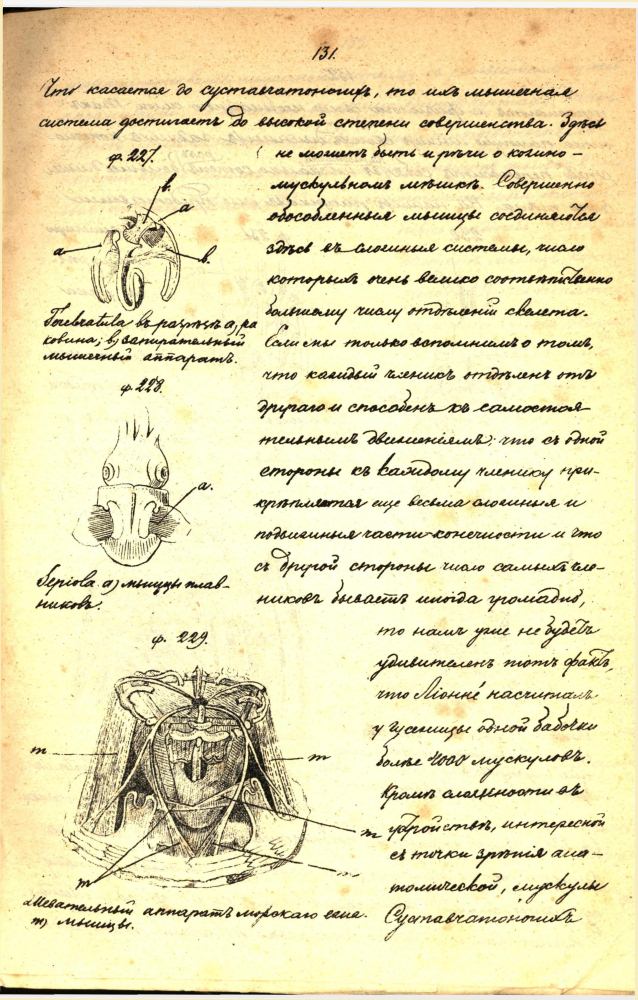 131.
Что касается до суставчатоногихъ, то ихъ мышечная
система достигаетъ до высокой степени совершенства. Здѣсь
ф. 227.
b.
a
a
b.
Terebratula въ разрѣзѣ a) ра
ковина; b) запирательный
мышечный аппаратъ.
ф. 228.
a.
Sepiola a) мышцы плав-
никовъ.
ф. 229.
m
m
m
m
m
Жевательный аппаратъ морскаго ежа.
m) мышцы.
не можетъ быть и рѣчи о кожно-
мускульномъ мѣшкѣ. Совершенно
обособленныя мышцы соединяются
здѣсь въ сложныя системы, число
которыхъ очень велико соотвѣтственно
большему числу отдѣленій скелета.
Если мы только вспомнимъ о томъ,
что каждый членикъ отдѣленъ отъ
другаго и способенъ къ самостоя-
тельнымъ движеніямъ; что съ одной
стороны къ каждому членику при-
крѣпляются еще весьма сложныя и
подвижныя части конечности и что
съ другой стороны число самыхъ чле-
никовъ бываетъ иногда громадно,
то намъ уже не будетъ
удивителенъ тотъ фактъ,
что Ліонне́ насчиталъ
у гусеницы одной бабочки
болѣе 4000 мускуловъ.
Кромѣ сложности въ
устройствѣ, интересной
съ точки зрѣнія ана-
томической, мускулы
Суставчатоногихъ